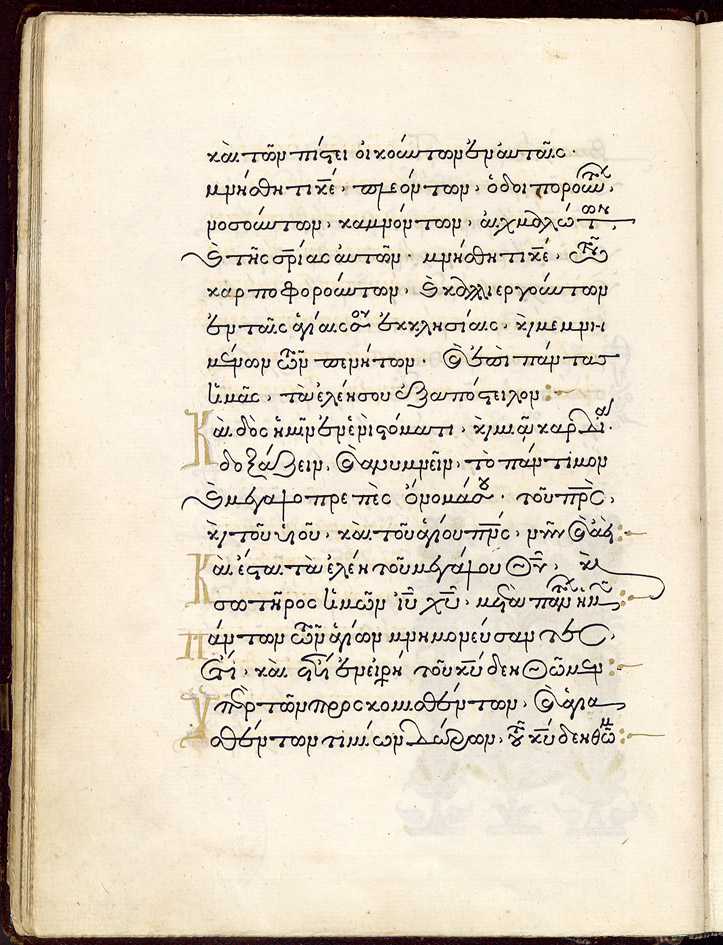 καὶ τῶν πίστει οἰκούντων ἐν αὐταῖς·
μνήσθητι κε̅, πλεόντων, ὁδοιπορούντ,
νοσούντων, καμνόντων, αἰχμαλώτων
κ τῆς σρ̅ίας αὐτῶν· μνήσθητι κε̅, τῶν
καρποφορούντων, κ καλλιεργούντων
ἐν ταῖς ἁγίαις σου ἐκκλησίαις, κ μεμνη
μένων τῶν πενήτων. κ ἐπὶ πάντας
ἡμᾶς, τὰ ἐλέη σου ἐξαπόστειλον:
Καὶ δὸς ἡμῖν ἐν ἑνὶ στόματι, κ μιᾷ καρδίᾳ
δοξάζειν, κ ἀνυμνεῖν, τὸ πάντιμον
κ μεγαλοπρεπὲς ὄνομά σου· τοῦ πρ̅ς,
κ τοῦ υἱοῦ, καὶ τοῦ ἁγίου πν̅ς, νῦν κ ἀεὶ:
Καὶ ἔσται τὰ ἐλέη τοῦ μεγάλου θυ̅, κ
σωτῆρος ἡμῶν ιυ̅ χυ̅, μετὰ πάντων ἡμῶν:
Πάντων τῶν ἁγίων μνημονεύσαντες,
ἔτι, κ ἔτι ἐν εἰρή τοῦ κυ̅ δεηθῶμεν:
Ὑπὲρ τῶν προσκομισθέντων, κ ἁγια
σθέντων τιμίων δώρων, τοῦ κυ̅ δεηθῶμ: